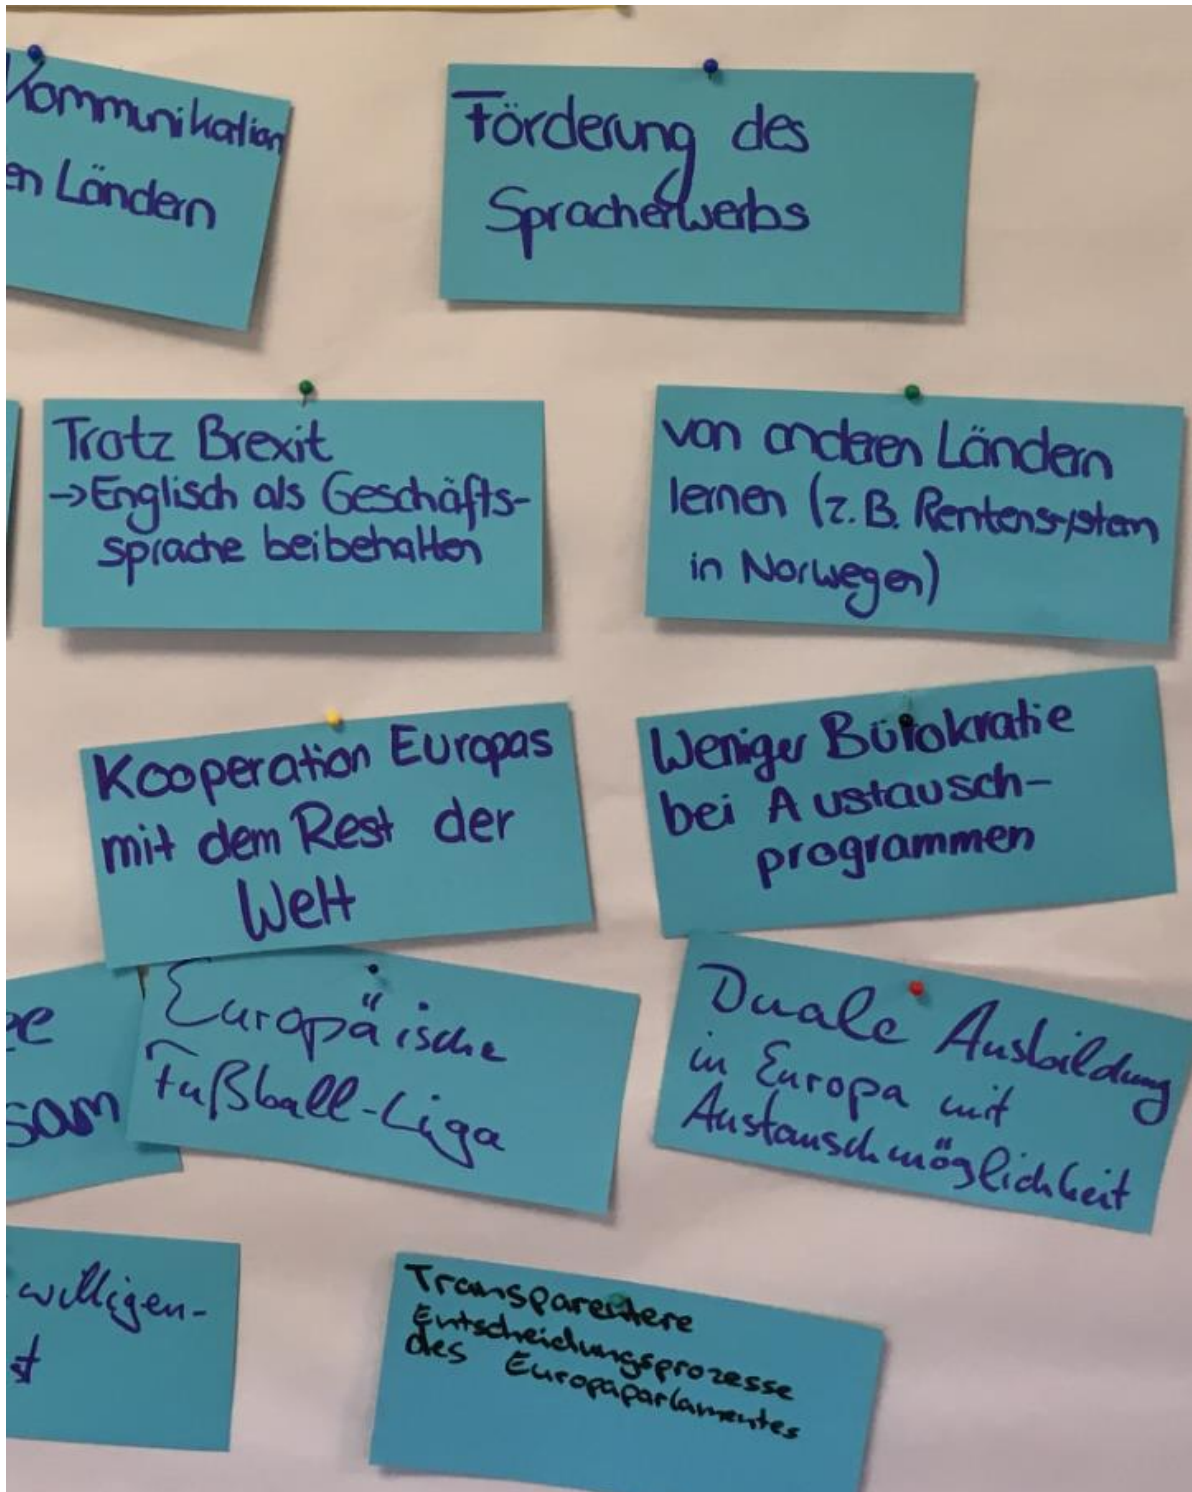 Kommunikation
en Ländern
Förderung des
Spracherwerbs
Trotz Brexit
->Englisch als Geschäfts-
sprache beibehalten
von anderen Ländern
lernen (z.B. Rentensystem
in Norwegen)
Kooperation Europas
mit dem Rest der
Welt
Weniger Bürokratie
bei Austausch-
programmen
sam
Europäische
Fußball-Liga
Duale Ausbildung
in Europa mit
Austauschmöglichkeit
willigen-
st
Transparentere
Entscheidungsprozesse
des Europaparlamentes